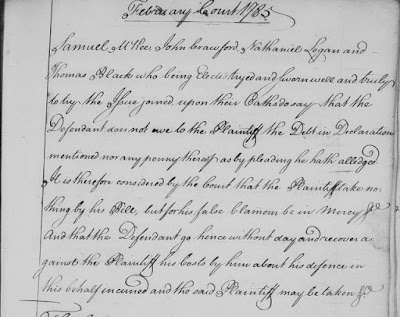 February Court 1785
Samuel McKee, John Crawford, Nathaniel Logan and
Thomas Black who being Elected tryed and Sworn well and truly
to try the Issue joined upon their Oaths do say that the
Defendant does not owe to the Plaintiff the Debt in Declaration
mentioned nor any penny thereof as by pleading he hath alledged
It is therefore considered by the Court that the Plaintiff take no-
thing by his Bill, but for his false Clamour be in Mercy &c
And that the Defendant go hence without day and recover a-
gainst the Plaintiff his Costs by him about his defence in
this behalf incurred and the said Plaintiff may be taken &c.